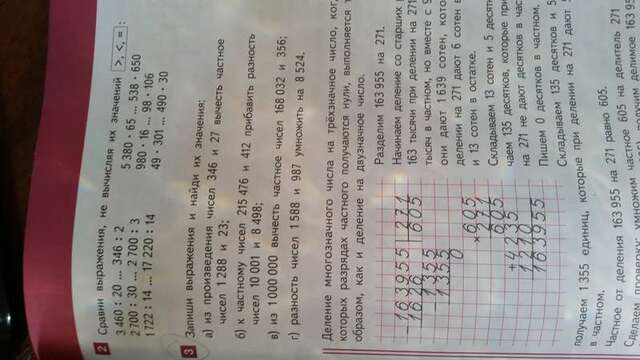 2 Сравни выражения, не вычисляя их значений >, <, = :
3 460 : 20 ... 346 : 2
5 380 · 65 ... 538 · 650
2 700 : 30 ... 2 700 : 3
980 · 16 ... 98 · 106
1 722 : 14 ... 17 220 : 14
49 · 301 ... 490 · 30
3 Запиши выражения и найди их значения:
а) из произведения чисел 346 и 27 вычесть частное
чисел 1 288 и 23;
б) к частному чисел 215 476 и 412 прибавить разность
чисел 10 001 и 8 498;
в) из 1 000 000 вычесть частное чисел 168 032 и 356;
г) разность чисел 1 588 и 987 умножить на 8 524.
Деление многозначного числа на трёхзначное число, ког
которых разрядах частного получаются нули, выполняется т
образом, как и деление на двузначное число.
163955 271
1626 605
1355
1355
0
× 605
271
605
+ 4235
1210
163955
Разделим 163 955 на 271.
Начинаем деление со старших
163 тысячи при делении на 271
тысяч в частном, но вместе с 9
они дают 1 639 сотен, кото
делении на 271 дают 6 сотен в
и 13 сотен в остатке.
Складываем 13 сотен и 5 десятк
чаем 135 десятков, которые при
на 271 не дают десятков в частн
Пишем 0 десятков в частном.
Складываем 135 десятков и 5
получаем 1 355 единиц, которые при делении на 271 дают 5
в частном.
Частное от деления 163 955 на 271 равно 605.
Сделаем проверку: умножим частное 605 на делитель 271